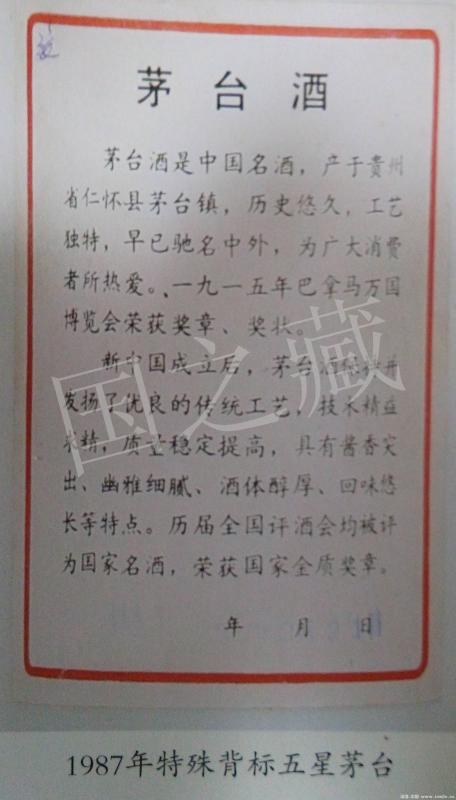 茅台酒
茅台酒是中国名酒，产于贵州
省仁怀县茅台镇，历史悠久，工艺
独特，早已驰名中外，为广大消费
者所热爱。一九一五年巴拿马万国
博览会荣获奖章、奖状。
新中国成立后，茅台酒继承并
发扬了优良的传统工艺，技术精益
求精，质量稳定提高，具有酱香突
出、幽雅细腻、酒体醇厚、回味悠
长等特点。历届全国评酒会均被评
为国家名酒，荣获国家金质奖章。
年 月 日
国之藏
1987年特殊背标五星茅台